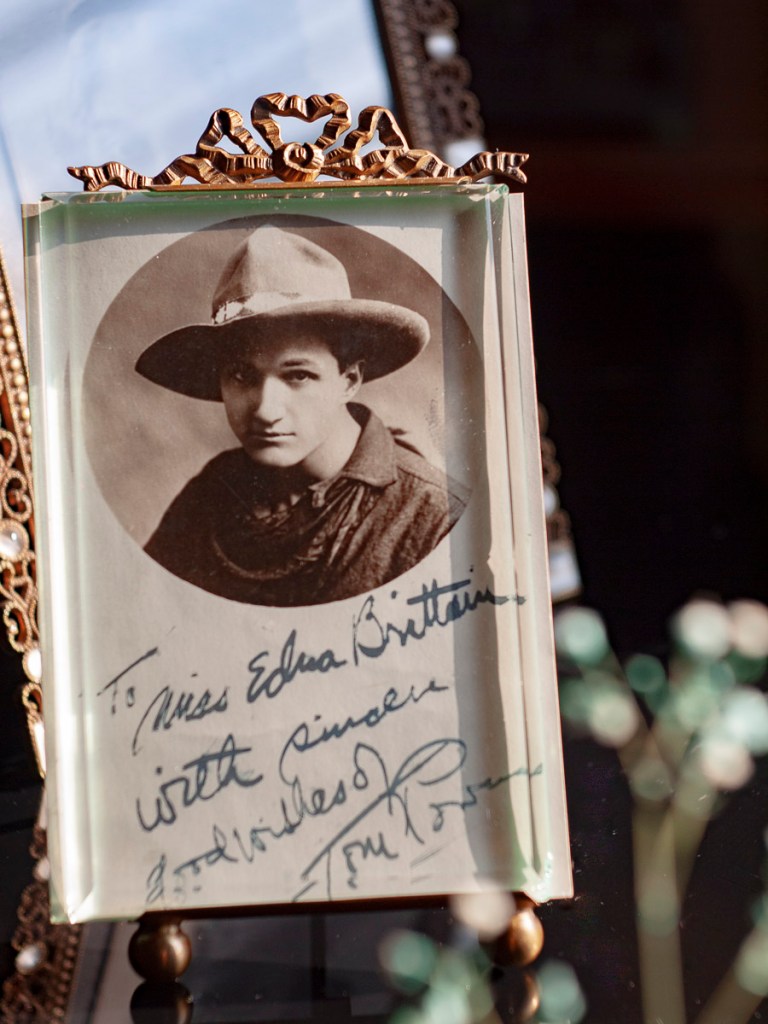 To Miss Edna Brittain.
with sincere
good wishes of
Tom Powers